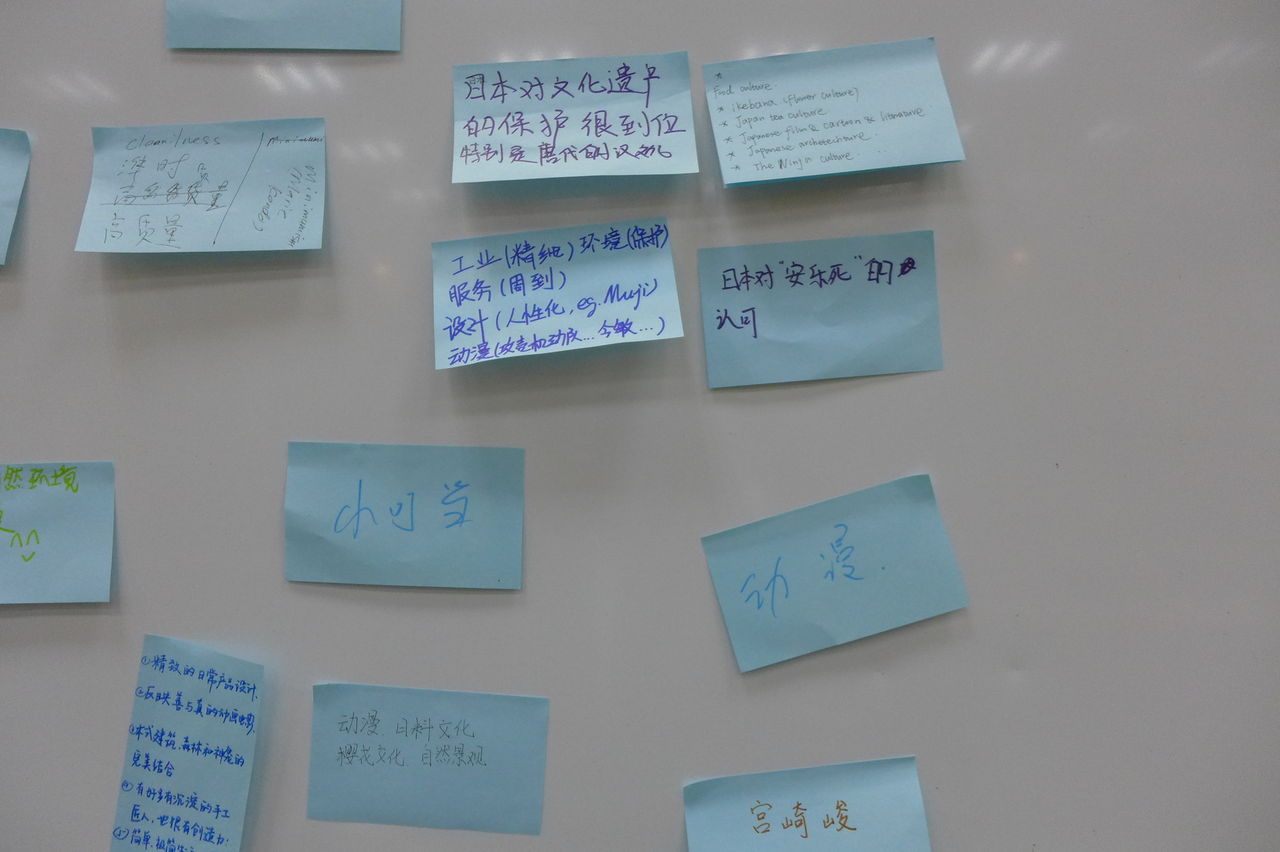 cleanilness
准时
高质量
Minimunism
(Marie
Kondo)
日本对文化遗产
的保护很到位
特别是唐代的汉文化
*
Food culture
* ikebana (flower culture)
* Japan tea culture
* Japanese film & cartoon & literature
* Japanese archetechture
* The Ninja culture
工业(精细)环境(保护)
服务(周到)
设计(人性化, eg. Muji)
动漫(攻壳机动队...今敏...)
日本对"安乐死"的
认可
然环境
小可爱
动漫.
①精致的日常产品设计.
②反映善与真的动画电影.
③本式建筑、森林和神宠的
完美结合
④有好多有沉淀的手工
匠人,也很有创造力;
⑤简单、极简
动漫、日料文化
樱花文化、自然景观
宫崎峻